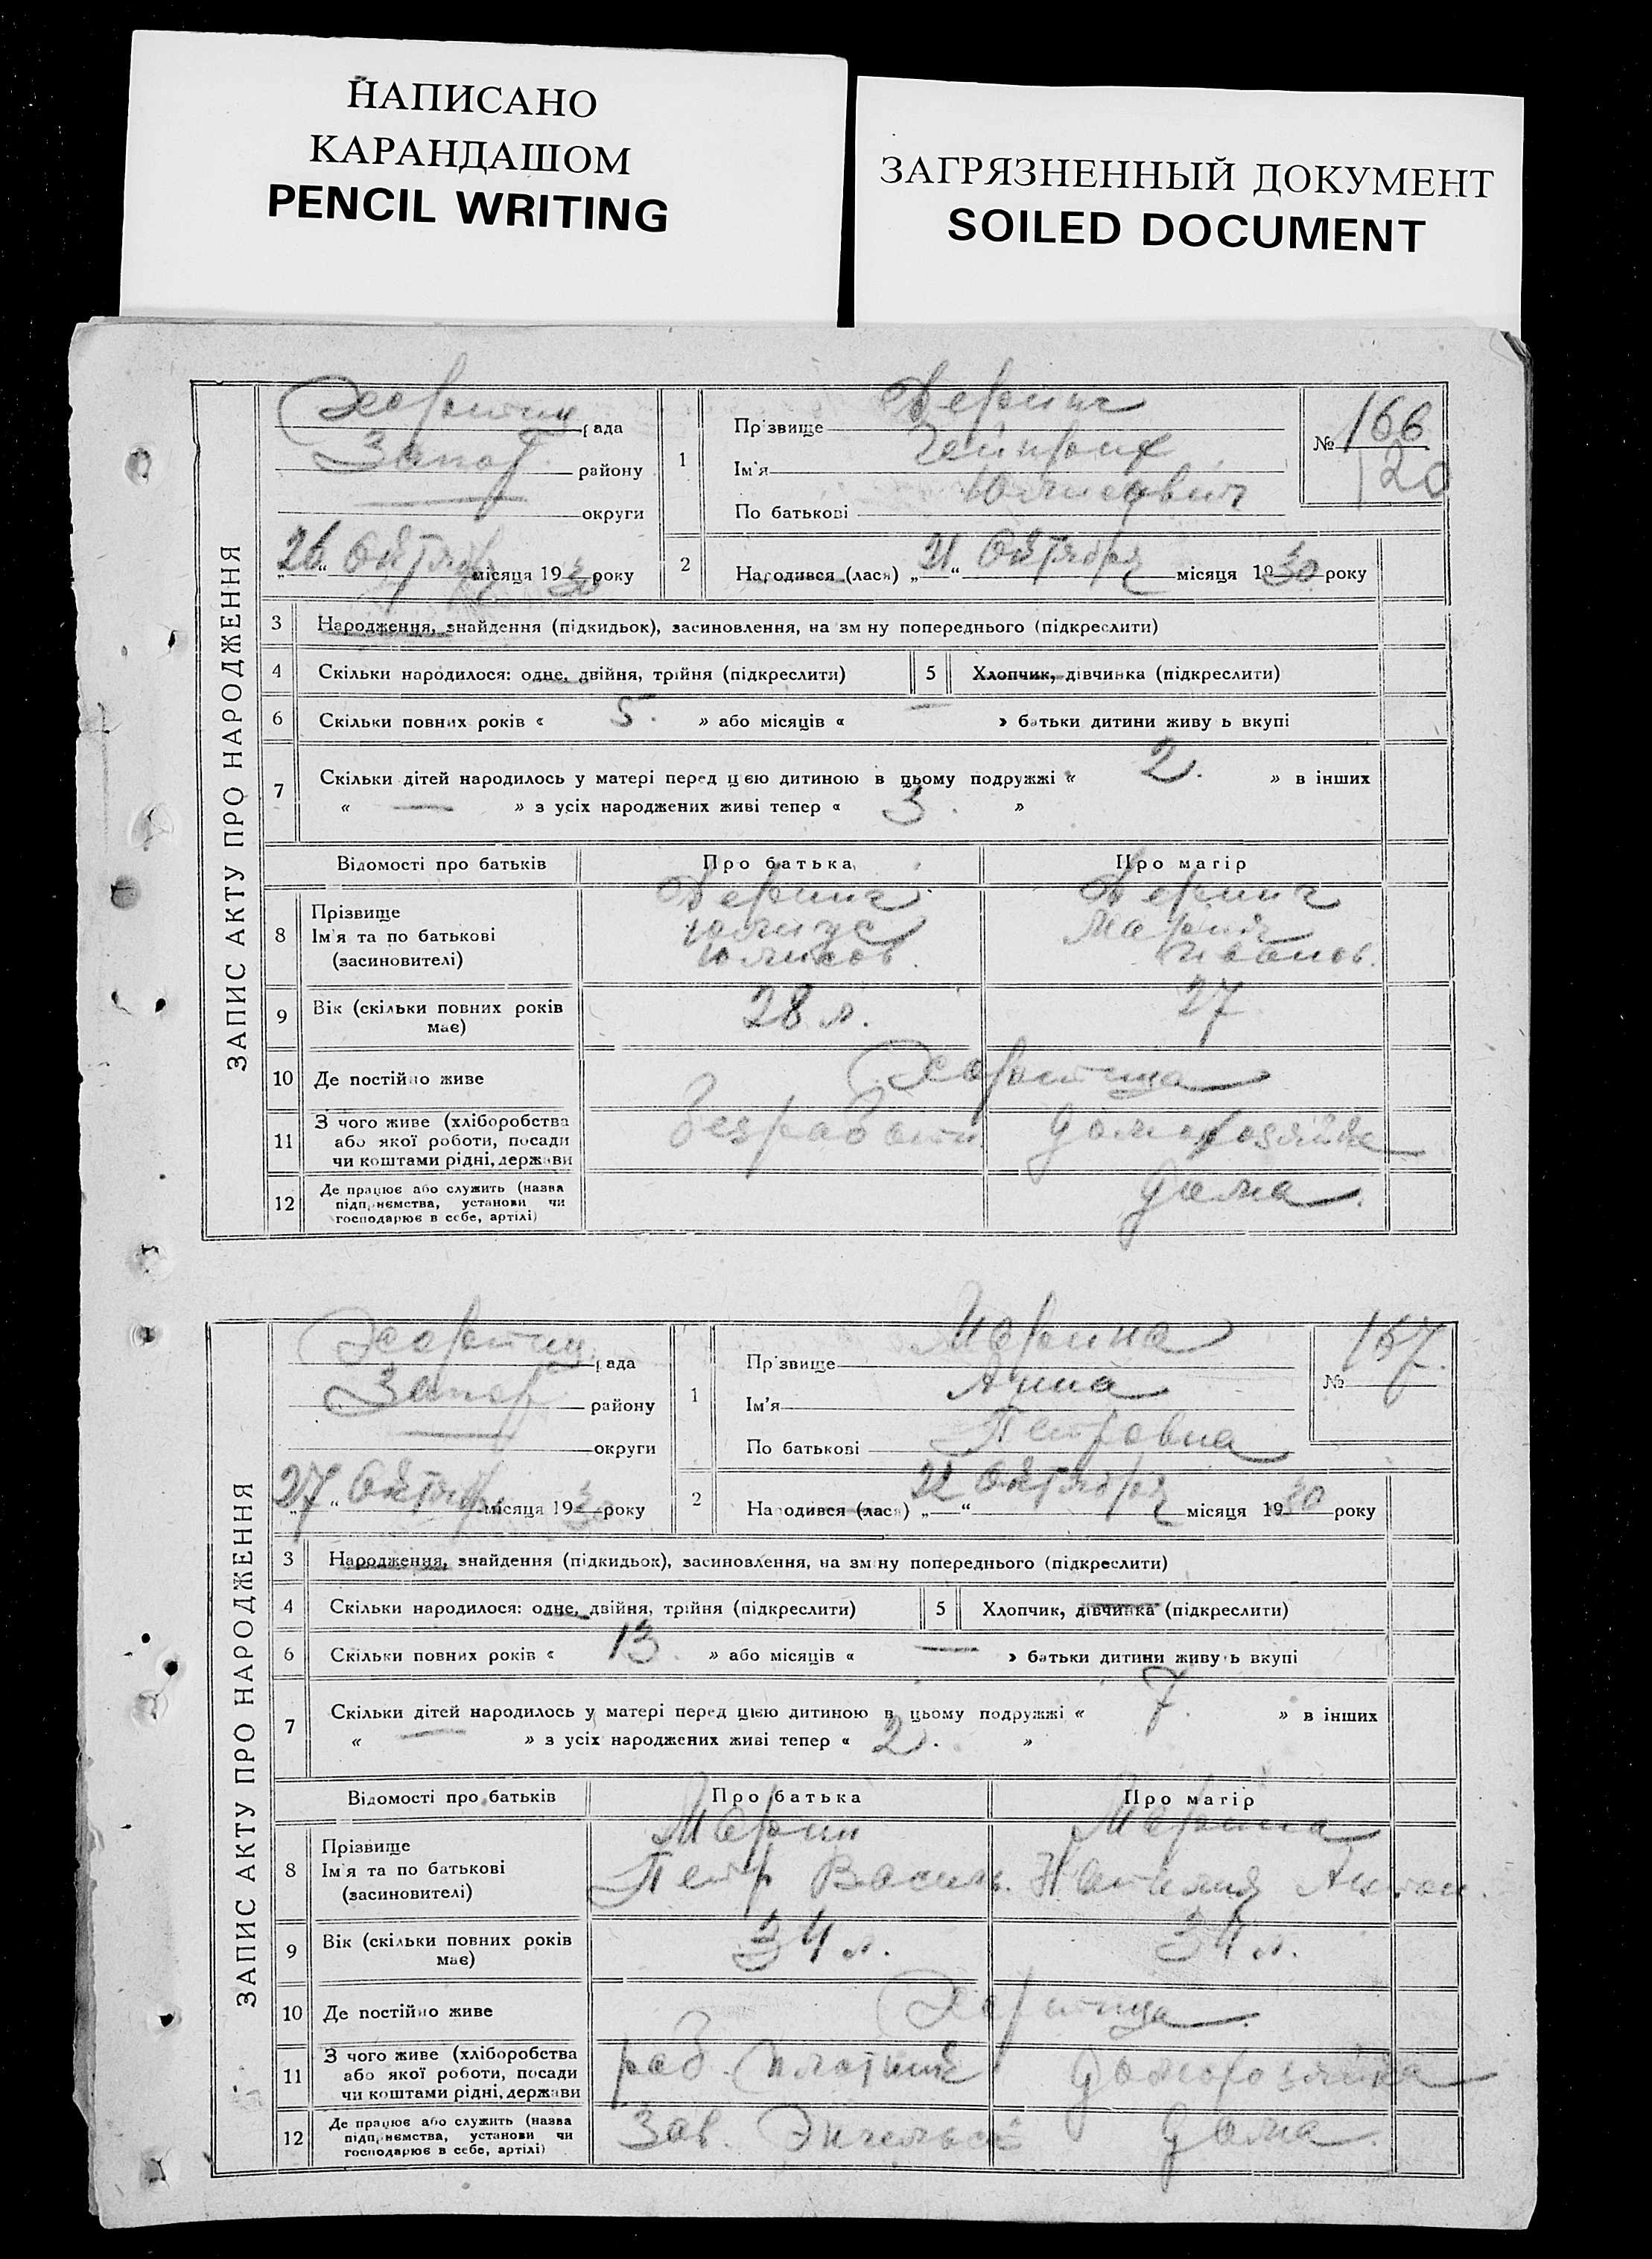 НАПИСАНО
КАРАНДАШОМ
PENCIL WRITING
ЗАГРЯЗНЕННЫЙ ДОКУМЕНТ
SOILED DOCUMENT
ЗАПИС АКТУ ПРО НАРОДЖЕННЯ
рада
Запор району
округи
26 Октября місяця 1930 року
1
Прізвище
Ім'я Гейнрих
По батькові Юлиусович
№ 166
120
2
Народився (лася) „21“ Октября місяця 1930 року
3 Народження, знайдення (підкидьок), засиновлення, на зміну попереднього (підкреслити)
4 Скільки народилося: одне, двійня, трійня (підкреслити)
5 Хлопчик, дівчинка (підкреслити)
6 Скільки повних років « 5. » або місяців « — » батьки дитини живуть вкупі
7 Скільки дітей народилось у матері перед цією дитиною в цьому подружжі « 2. » в інших
« — » з усіх народжених живі тепер « 3. »
Відомості про батьків Про батька Про матір
8 Прізвище
Ім'я та по батькові Юлиус Мария
(засиновителі) Юлиусов. Иванов.
9 Вік (скільки повних років має) 28 л. 27
10 Де постійно живе Хортица
11 З чого живе (хліборобства
або якої роботи, посади Безработн Домохозяйка
чи коштами рідні, держави
12 Де працює або служить (назва
підприємства, установи чи Дома.
господарює в себе, артілі)
ЗАПИС АКТУ ПРО НАРОДЖЕННЯ
рада
Запор району
округи
27 Октября місяця 1930 року
1
Прізвище Шарина
Ім'я Анна
По батькові Петровна
№ 167.
2
Народився (лася) „22“ Октября місяця 1930 року
3 Народження, знайдення (підкидьок), засиновлення, на зміну попереднього (підкреслити)
4 Скільки народилося: одне, двійня, трійня (підкреслити)
5 Хлопчик, дівчинка (підкреслити)
6 Скільки повних років « 13. » або місяців « — » батьки дитини живуть вкупі
7 Скільки дітей народилось у матері перед цією дитиною в цьому подружжі « 7. » в інших
« — » з усіх народжених живі тепер « 2. »
Відомості про батьків Про батька Про матір
8 Прізвище Шарин Шарина
Ім'я та по батькові Петр Василь. Наталия Антон.
(засиновителі)
9 Вік (скільки повних років має) 34 л. 34 л.
10 Де постійно живе Хортица.
11 З чого живе (хліборобства
або якої роботи, посади раб. плотник Домохозяйка
чи коштами рідні, держави
12 Де працює або служить (назва
підприємства, установи чи Зав. Энгельса Дома.
господарює в себе, артілі)